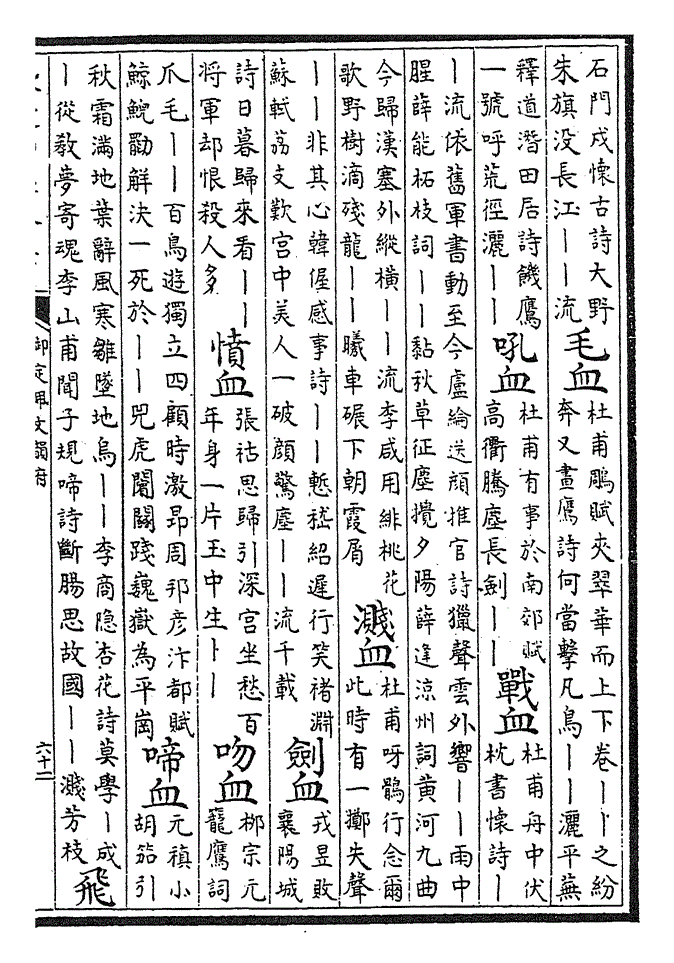 石門戍懷古詩大野
朱旗没長江丨丨流
毛血
杜甫鵰賦夾翠華而上下卷丨丨之紛
奔又畫鷹詩何當擊凡鳥丨丨灑平蕪
釋道潛田居詩饑鷹
一號呼荒徑灑丨丨
吼血
杜甫有事於南郊賦
高衢騰塵長劍丨丨
戰血
杜甫舟中伏
枕書懷詩丨
丨流依舊軍書動至今盧綸送顔推官詩獵聲雲外響丨丨雨中
腥薛能柘枝詞丨丨黏秋草征塵攪夕陽薛逢涼州詞黄河九曲
今歸漢塞外縱横丨丨流李咸用緋桃花
歌野樹滴殘龍丨丨曦車碾下朝霞屑
濺血
杜甫呀鶻行念爾
此時有一擲失聲
丨丨非其心韓偓感事詩丨丨慙嵇紹遲行笑褚淵
蘇軾荔支歎宫中美人一破顔驚塵丨丨流千載
劍血
戎昱敗
襄陽城
詩日暮歸來看丨丨
將軍却恨殺人多
憤血
張祜思歸引深宫坐愁百
年身一片玉中生丨丨
吻血
栁宗元
籠鷹詞
爪毛丨丨百鳥遊獨立四顧時激昂周邦彦汴都賦
鯨鯢勠解決一死於丨丨兕虎闤闠踐巍嶽為平崗
啼血
元稹小
胡笳引
秋霜滿地葉辭風寒雛墜地烏丨丨李商隐杏花詩莫學丨成
丨從教夢寄魂李山甫聞子規啼詩斷腸思故國丨丨濺芳枝
飛
御定佩文韻府
六十二